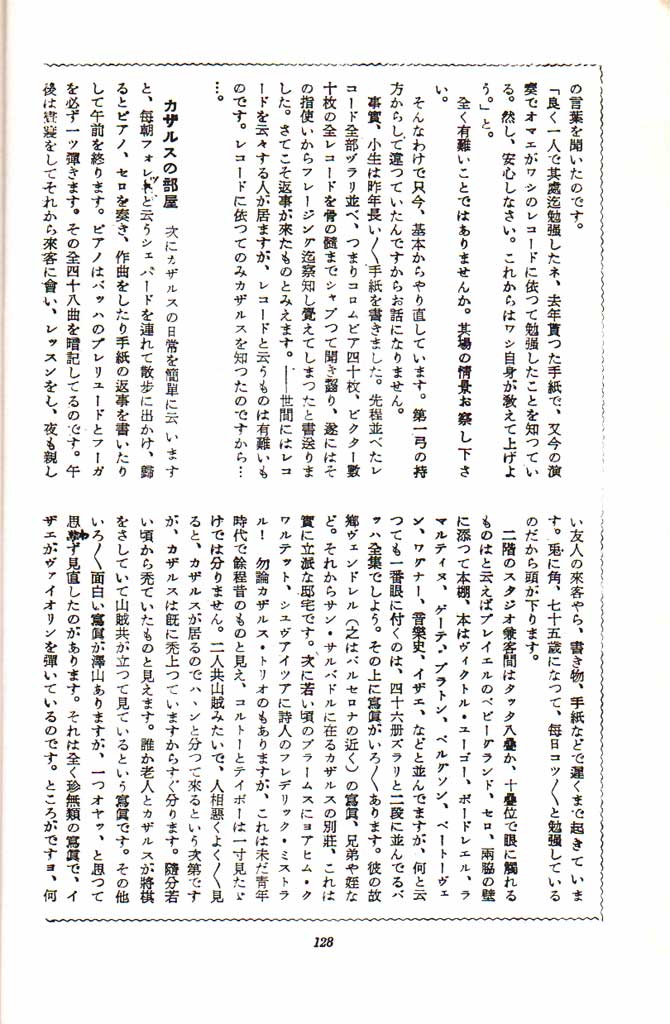 の言葉を聞いたのです。
「良く一人で其處迄勉強したネ、去年貰つた手紙で、又今の演
奏でオマエがワシのレコードに依つて勉強したことを知つてい
る。然し、安心しなさい。これからはワシ自身が教えて上げよ
う。」と。
全く有難いことではありませんか。其場の情景お察し下さ
い。
そんなわけで只今、基本からやり直しています。第一弓の持
方からして違つていたんですからお話になりません。
事實、小生は昨年長い〳〵手紙を書きました。先程並べたレ
コード全部ヅラリ並べ、つまりコロムビア四十枚、ビクター數
十枚の全レコードを骨の髄までシャブつて聞き齧り、遂にはそ
の指使いからフレージング迄察知し覚えてしまつたと書送りま
した。さてこそ返事が來たものとみえます。――世間にはレコ
ードを云々する人が居ますが、レコードと云うものは有難いも
のです。レコードに依つてのみカザルスを知つたのですから…
…。
カザルスの部屋　次にカザルスの日常を簡単に云います
と、毎朝フォレットと云うシェパードを連れて散歩に出かけ、歸
るとピアノ、セロを奏き、作曲をしたり手紙の返事を書いたり
して午前を終ります。ピアノはバッハのプレリュードとフーガ
を必ず一ツ彈きます。その全四十八曲を暗記してるのです。午
後は晝寢をしてそれから來客に會い、レッスンをし、夜も親し
い友人の來客やら、書き物、手紙などで遲くまで起きていま
す。兎に角、七十五歳になつて、毎日コツ〳〵と勉強している
のだから頭が下ります。
二階のスタジオ兼客間はタッタ八疊か、十疊位で眼に觸れる
ものはと云えばプレイエルのベビーグランド、セロ、兩脇の壁
に添つて本棚、本はヴィクトル・ユーゴー、ボードレエル、ラ
マルティヌ、ゲーテ、プラトン、ベルグソン、ベートーヴェ
ン、ワグナー、音樂史、イザエ、などと並んでますが、何と云
つても一番眼に付くのは、四十六册ズラリと二段に並んでるバ
ッハ全集でしよう。その上に寫眞がいろ〳〵あります。彼の故
鄕ヴェンドレル（之はバルセロナの近く）の寫眞、兄弟や姪な
ど。それからサン・サルバドルに在るカザルスの別莊、これは
實に立派な邸宅です。次に若い頃のブラームスにヨアヒム・ク
ワルテット、シュヴアイツアに詩人のフレデリック・ミストラ
ル！　勿論カザルス・トリオのもありますが、これは未だ青年
時代で餘程昔のものと見え、コルトーとテイボーは一寸見たゞ
けでは分りません。二人共山賊みたいで、人相惡くよく〳〵見
ると、カザルスが居るのでハヽンと分つて來るという次第です
が、カザルスは既に禿上つていますからすぐ分ります。隨分若
い頃から禿ていたものと見えます。誰か老人とカザルスが將棋
をさしていて山賊共が立つて見ているという寫眞です。その他
いろ〳〵面白い寫眞が澤山ありますが、一つオヤッ、と思つて
思わず見直したのがあります。それは全く珍無類の寫眞で、イ
ザエがヴァイオリンを彈いているのです。ところがですヨ、何
128